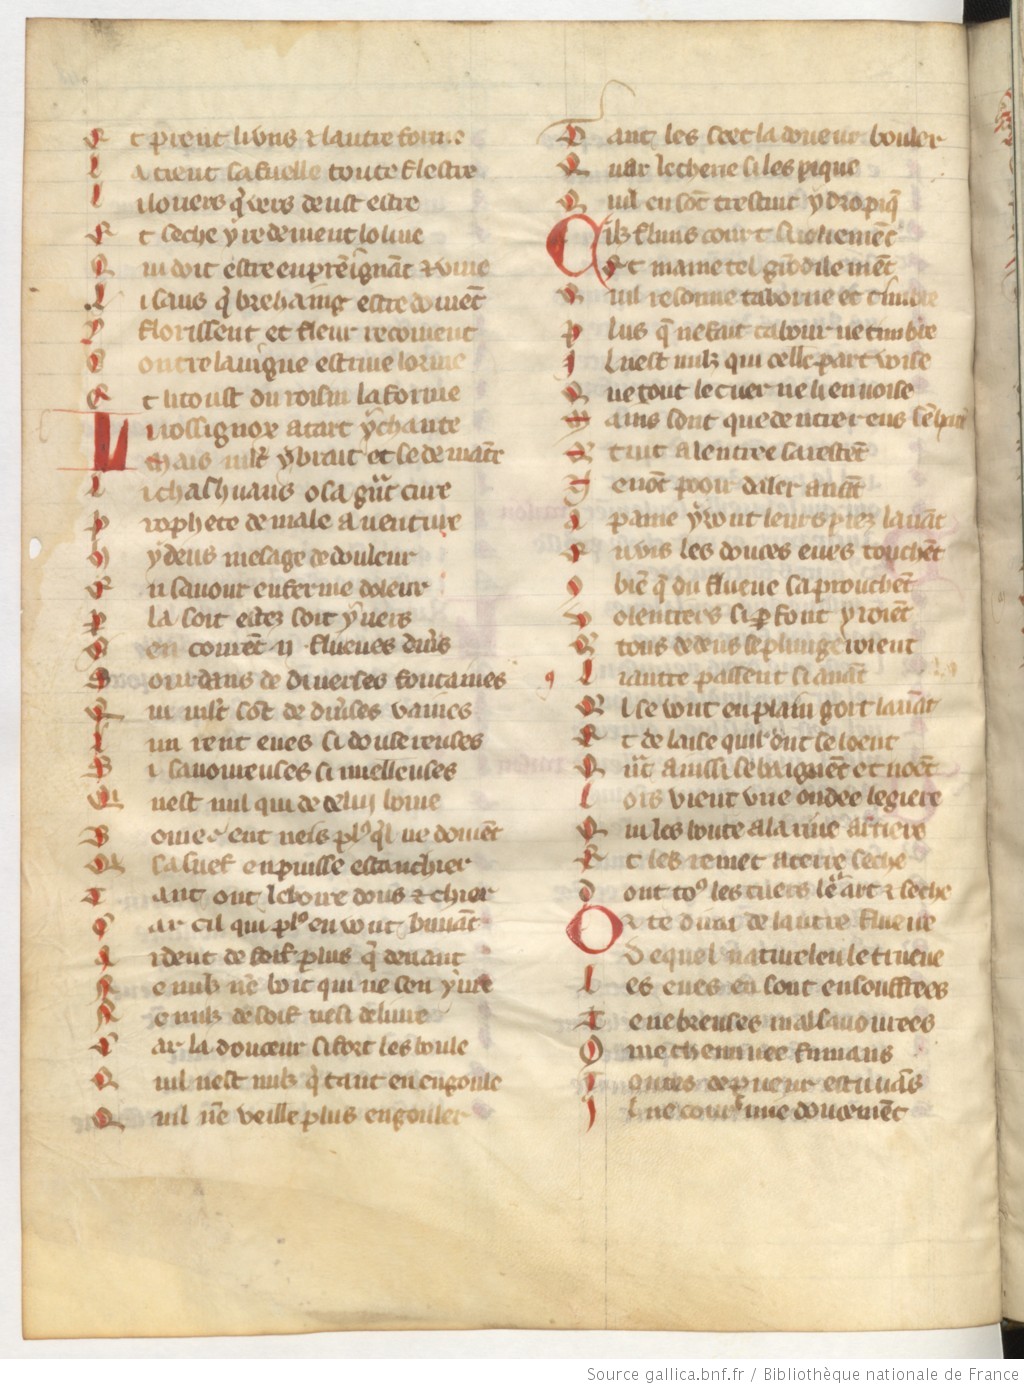 Et prent livns et lautre forme
La tient sa fuelle toute flestre
Li loriers qͥ vers deust estre
Et seche y redevient lolive
Qui doit estre enpreignāt et vive
Li saus qͥ brehaing estre doivēt
Florissent et fleur recoivent
Contre la vigne estrive lorme
Et li toust du roisin la forme
Li rossignox a tart y chante
Mais mlt y brait et se demāte
Li chahuans o sa gͣnt cure
Prophete de male aventure
Hydeus mesage de douleur
En savour en forme doleur
Par la soit estez soit yvers
Sen courēt .ii. flueues divˢs
Sourdans de diverses fontaines
Qui mlt sōt de divˢses vaines
Lun rent eues si douser euses
Si savoureuses si mielleuses
Quil nest nul qui de celui boive
Boive en ent neis plꝰ qͥl ne doivent
Qui sa suef en puisse estanchier
Tant ont le boire dous et chier
Car cil qui plꝰ en vont buvāt
Ardent de soif plus qͥ devant
Ne nulz nē boit qui ne sen yvre
Ne nulz de soif nest delivre
Car la douceur si fort les boule
Quil nest nulz qͥ tant en engoule
Quil nē veille plus engouler
Tant les scet la douceur bouler
Quar lecherie si les pique
Quil en sōt trestuit ydropiq̄
Cilz fluns court si joliement
Et maine tel gͣndilemēt
Quil resonne taborne et timbre
Plus q̄ ne fait tabour ne timbre
Il nest nulz qui celle part voise
Que tout le cuer ne li envoise
Mains sont que dentrer ens se hastēt
Qui tuit a lentree sarestēt
Ne nōt pooir daler avāt
A paine y vont leurs piez lavāt
Envis les douces eues touchēt
Combiē q̄ du flueve saprouchēt
Volentiers si ꝑfont y roiēt
Et tous dedens se plungeroient
Li autre passent si avāt
Quil se vont en plain gort lavāt
Et de laise quil ōnt se loent
Quāt aussi se baignēt et noēt
Lors vient une ondee legiere
Qui les boute a la rive arriere
Et les remet a terre seche
Dont toꝰ les cuers leͬ art et seche
Or te dirai de lautre flueve
De quel nature len le trueve
Les eues en sont ensouffrees
Tenebreuses mal savourees
Comme cheminee fumans
Toutes de pueur escumās
Il ne court mie doucemēt